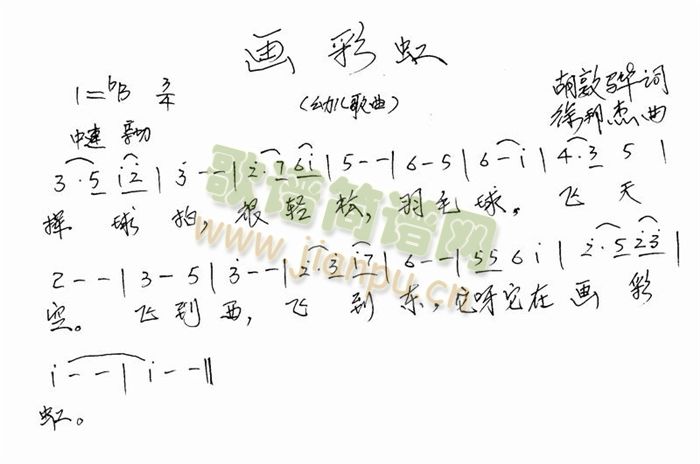 画彩虹
(幼儿歌曲)
1=♭B 3/4
胡敦骅词
徐邦杰曲
中速
3·5 i̇2̇ | 3̇ - - | 2̇·7 6i̇ | 5 - - | 6 - 5 | 6 - i̇ | 4·3 5 |
挥球拍,很轻松,羽毛球,飞天
2 - - | 3 - 5 | 3̇ - - | 2̇·3̇ i̇7 | 6 - - | 55 6 i̇ | 2̇·5 2̇3̇ |
空。飞到西,飞到东,它呀它在画彩
i̇ - - | i̇ - - ‖
虹。
歌谱简谱网
www.jianpu.cn